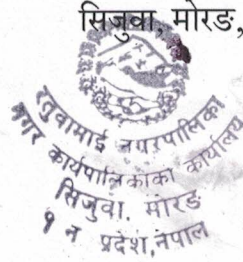 सिजुवा, मोरङ,
रतुवामाई नगरपालिका
नगर कार्यपालिकाको कार्यालय
सिजुवा, मोरङ
१ नं प्रदेश, नेपाल